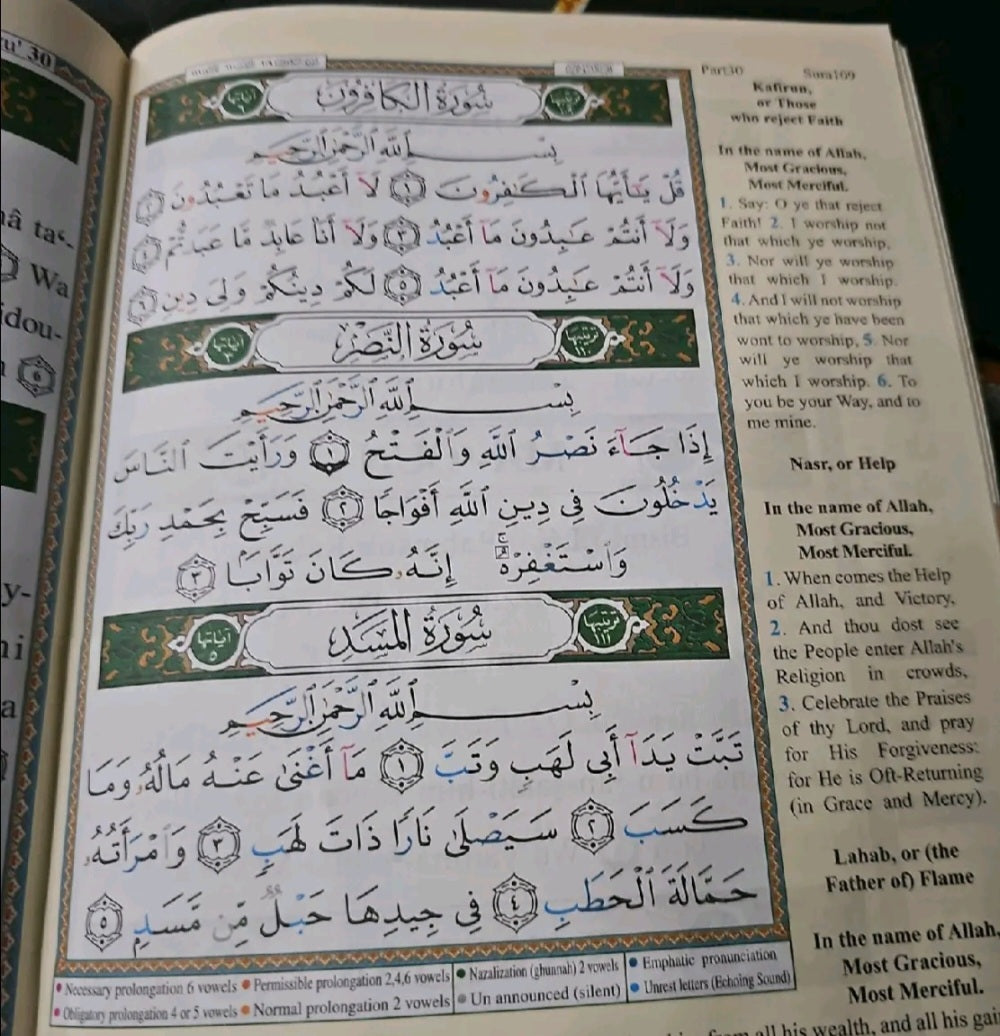 u' 30
سُورَةُ الكَافِرُونَ
آيَاتُهَا ٦
بِسْمِ ٱللَّهِ ٱلرَّحْمَٰنِ ٱلرَّحِيمِ
قُلْ يَٰٓأَيُّهَا ٱلْكَٰفِرُونَ ١ لَآ أَعْبُدُ مَا تَعْبُدُونَ ٢
وَلَآ أَنتُمْ عَٰبِدُونَ مَآ أَعْبُدُ ٣ وَلَآ أَنَا۠ عَابِدٌ مَّا عَبَدتُّمْ ٤
وَلَآ أَنتُمْ عَٰبِدُونَ مَآ أَعْبُدُ ٥ لَكُمْ دِينُكُمْ وَلِىَ دِينِ ٦
ترتيبها ١١٠ سُورَةُ النَّصْرِ آياتها ٣
بِسْمِ ٱللَّهِ ٱلرَّحْمَٰنِ ٱلرَّحِيمِ
إِذَا جَآءَ نَصْرُ ٱللَّهِ وَٱلْفَتْحُ ١ وَرَأَيْتَ ٱلنَّاسَ
يَدْخُلُونَ فِى دِينِ ٱللَّهِ أَفْوَاجًا ٢ فَسَبِّحْ بِحَمْدِ رَبِّكَ
وَٱسْتَغْفِرْهُ ۚ إِنَّهُۥ كَانَ تَوَّابًۢا ٣
ترتيبها ١١١ سُورَةُ المَسَدِ آياتها ٥
بِسْمِ ٱللَّهِ ٱلرَّحْمَٰنِ ٱلرَّحِيمِ
تَبَّتْ يَدَآ أَبِى لَهَبٍ وَتَبَّ ١ مَآ أَغْنَىٰ عَنْهُ مَالُهُۥ وَمَا
كَسَبَ ٢ سَيَصْلَىٰ نَارًا ذَاتَ لَهَبٍ ٣ وَٱمْرَأَتُهُۥ
حَمَّالَةَ ٱلْحَطَبِ ٤ فِى جِيدِهَا حَبْلٌ مِّن مَّسَدٍۭ ٥
Necessary prolongation 6 vowels Permissible prolongation 2,4,6 vowels Nazalization (ghunnah) 2 vowels Emphatic pronunciation
Obligatory prolongation 4 or 5 vowels Normal prolongation 2 vowels Un announced (silent) Unrest letters (Echoing Sound)
Part30 Sura109
Kafirun,
or Those
who reject Faith
In the name of Allah,
Most Gracious,
Most Merciful.
1. Say: O ye that reject
Faith! 2. I worship not
that which ye worship,
3. Nor will ye worship
that which I worship.
4. And I will not worship
that which ye have been
wont to worship, 5. Nor
will ye worship that
which I worship. 6. To
you be your Way, and to
me mine.
Nasr, or Help
In the name of Allah,
Most Gracious,
Most Merciful.
1. When comes the Help
of Allah, and Victory,
2. And thou dost see
the People enter Allah's
Religion in crowds,
3. Celebrate the Praises
of thy Lord, and pray
for His Forgiveness:
for He is Oft-Returning
(in Grace and Mercy).
Lahab, or (the
Father of) Flame
In the name of Allah,
Most Gracious,
Most Merciful.
all his wealth, and all his